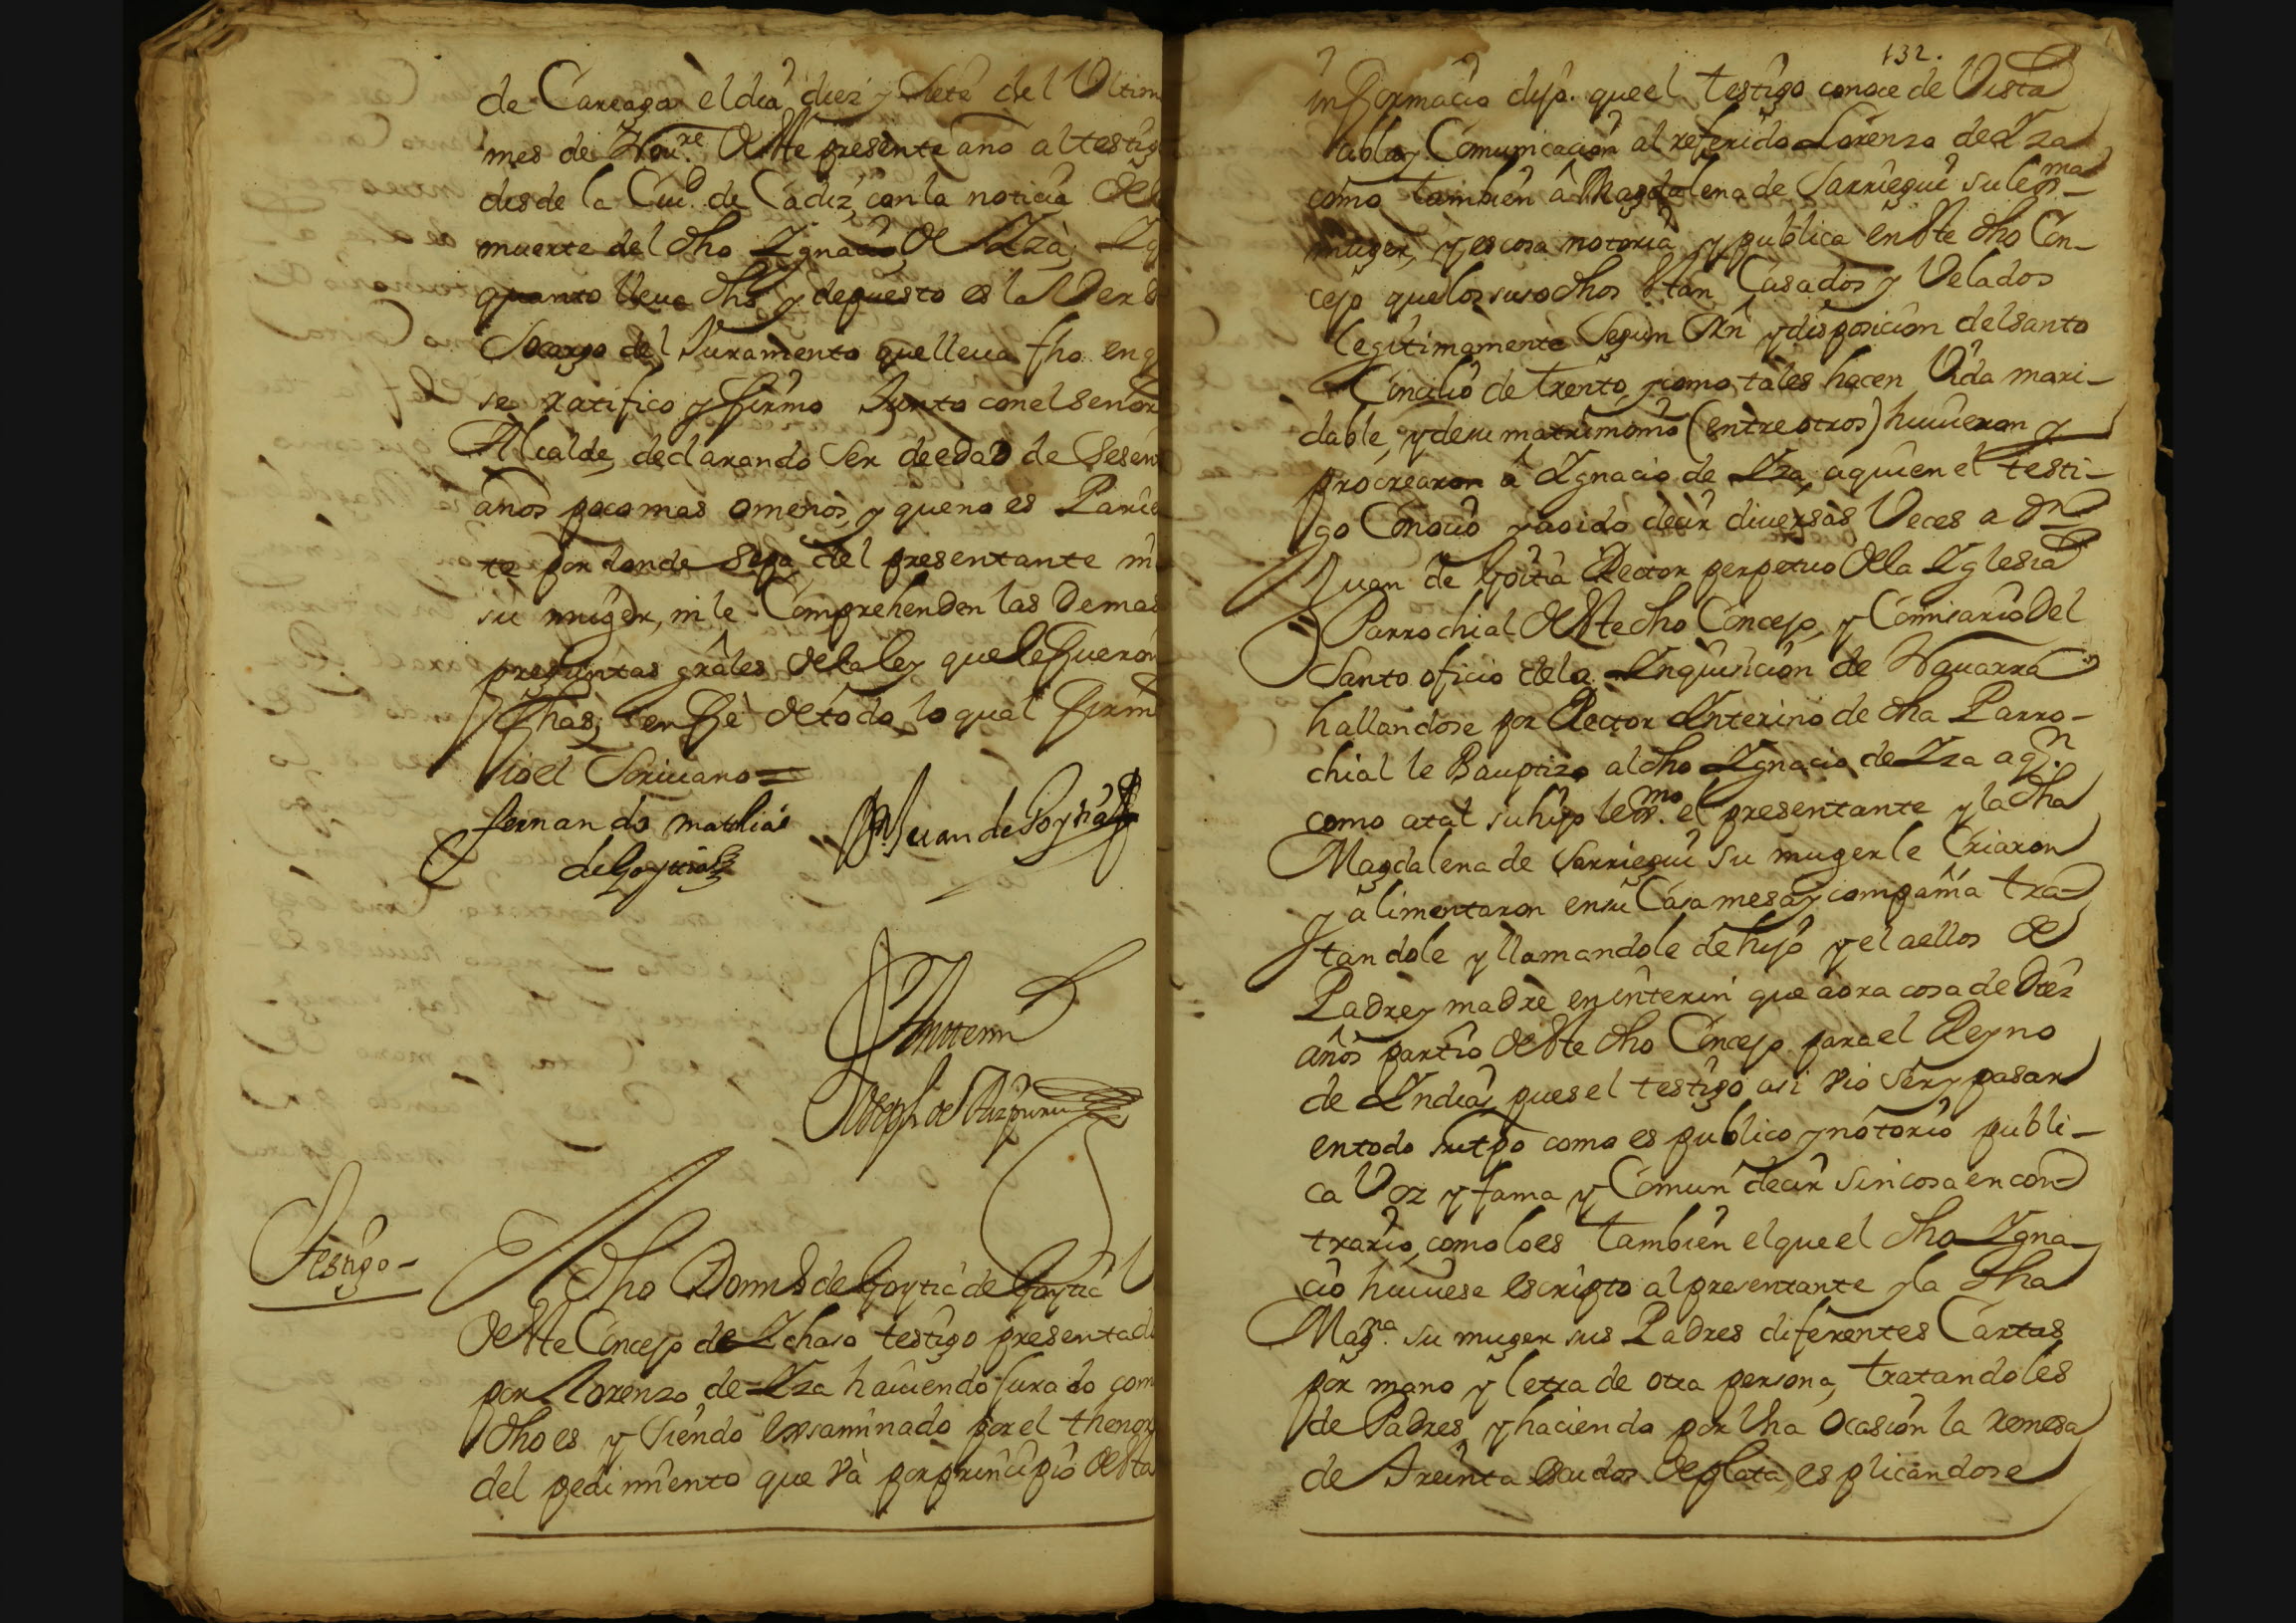 de Careaga el dia diez y siete del Ultim
mes de Nou.re deste presente año al testig
desde la Ciu.d de Cadiz con la noticia del
muerte del dho Ygnacio de Yza; Y q
quanto lleua dho y depuesto es la Verd
Socargo del Juramento que lleua fho en q
se ratifico y firmo Junto con el Señor
Alcalde, declarando Ser de edad de Sesen
años poco mas omenos, y que no es Parie
te por donde sepa del presentante ni
su muger, ni le Comprehenden las Demas
preguntas grãles de la ley que le fueron
fhas; y en fee de todo lo qual firm
io el Scriuano =
fernando mathias
de Goyuia
Juan de Goytia
Ante mi
Joseph de Aizpuru
Testigo -
El dho Dom.s de Goytia de Goytia
deste Concejo de Ychaso testigo presentad
por Lorenzo de Yza hauiendo Jurado com
dho es y siendo exsaminado por el thenor
del pedimiento que và por principio desta
132.
informacio dijo. que el testigo conoce de Vista
abla y Comunicacion al referido Lorenzo de Yza
como tambien â Magdalena de Sarriegui su leg.ma
muger, y es cosa notoria y publica en este dho Con-
cejo que los susodhos estan Casados y Velados
legitimamente Segun Orñ y disposicion del santo
Concilio de trento, y como tales hacen Vida mari-
dable, y de su matrimonio (entre otros) huuieron y
procrearon â Ygnacio de Yza, a quien el testi-
go Conocio y a oido decir diuersas Veces a Dn
Juan de Goitia Rector perpetuo de la Yglesia
Parrochial deste dho Concejo, y Comisario Del
Santo oficio de la Ynquisicion de Nauarra
hallandose por Rector Ynterino de dha Parro-
chial le Bauptizo al dho Ygnacio de Yza a q.n
como atal su hijo leg.mo el presentante y la dha
Magdalena de Sarriegui su muger le Criaron
y alimentaron en su Casa mesa y compañia tra-
tandole y llamandole de hijo y el a ellos de
Padre y madre en interin que aora cosa de Diez
años partio deste dho Concejo para el Reyno
de Yndias, pues el testigo asi vio ser y pasar
en todo su tpo como es publico y notorio publi-
ca Voz y fama y Comun decir sin cosa en con-
trario, como lo es tambien el que el dho Ygna-
cio huuiese escripto al presentante y la dha
Mag.na su muger sus Padres diferentes Cartas
por mano y letra de otra persona, tratandoles
de Padres, y haciendo por Vna Ocasion la remesa
de treinta Escudos de plata, esplicandose